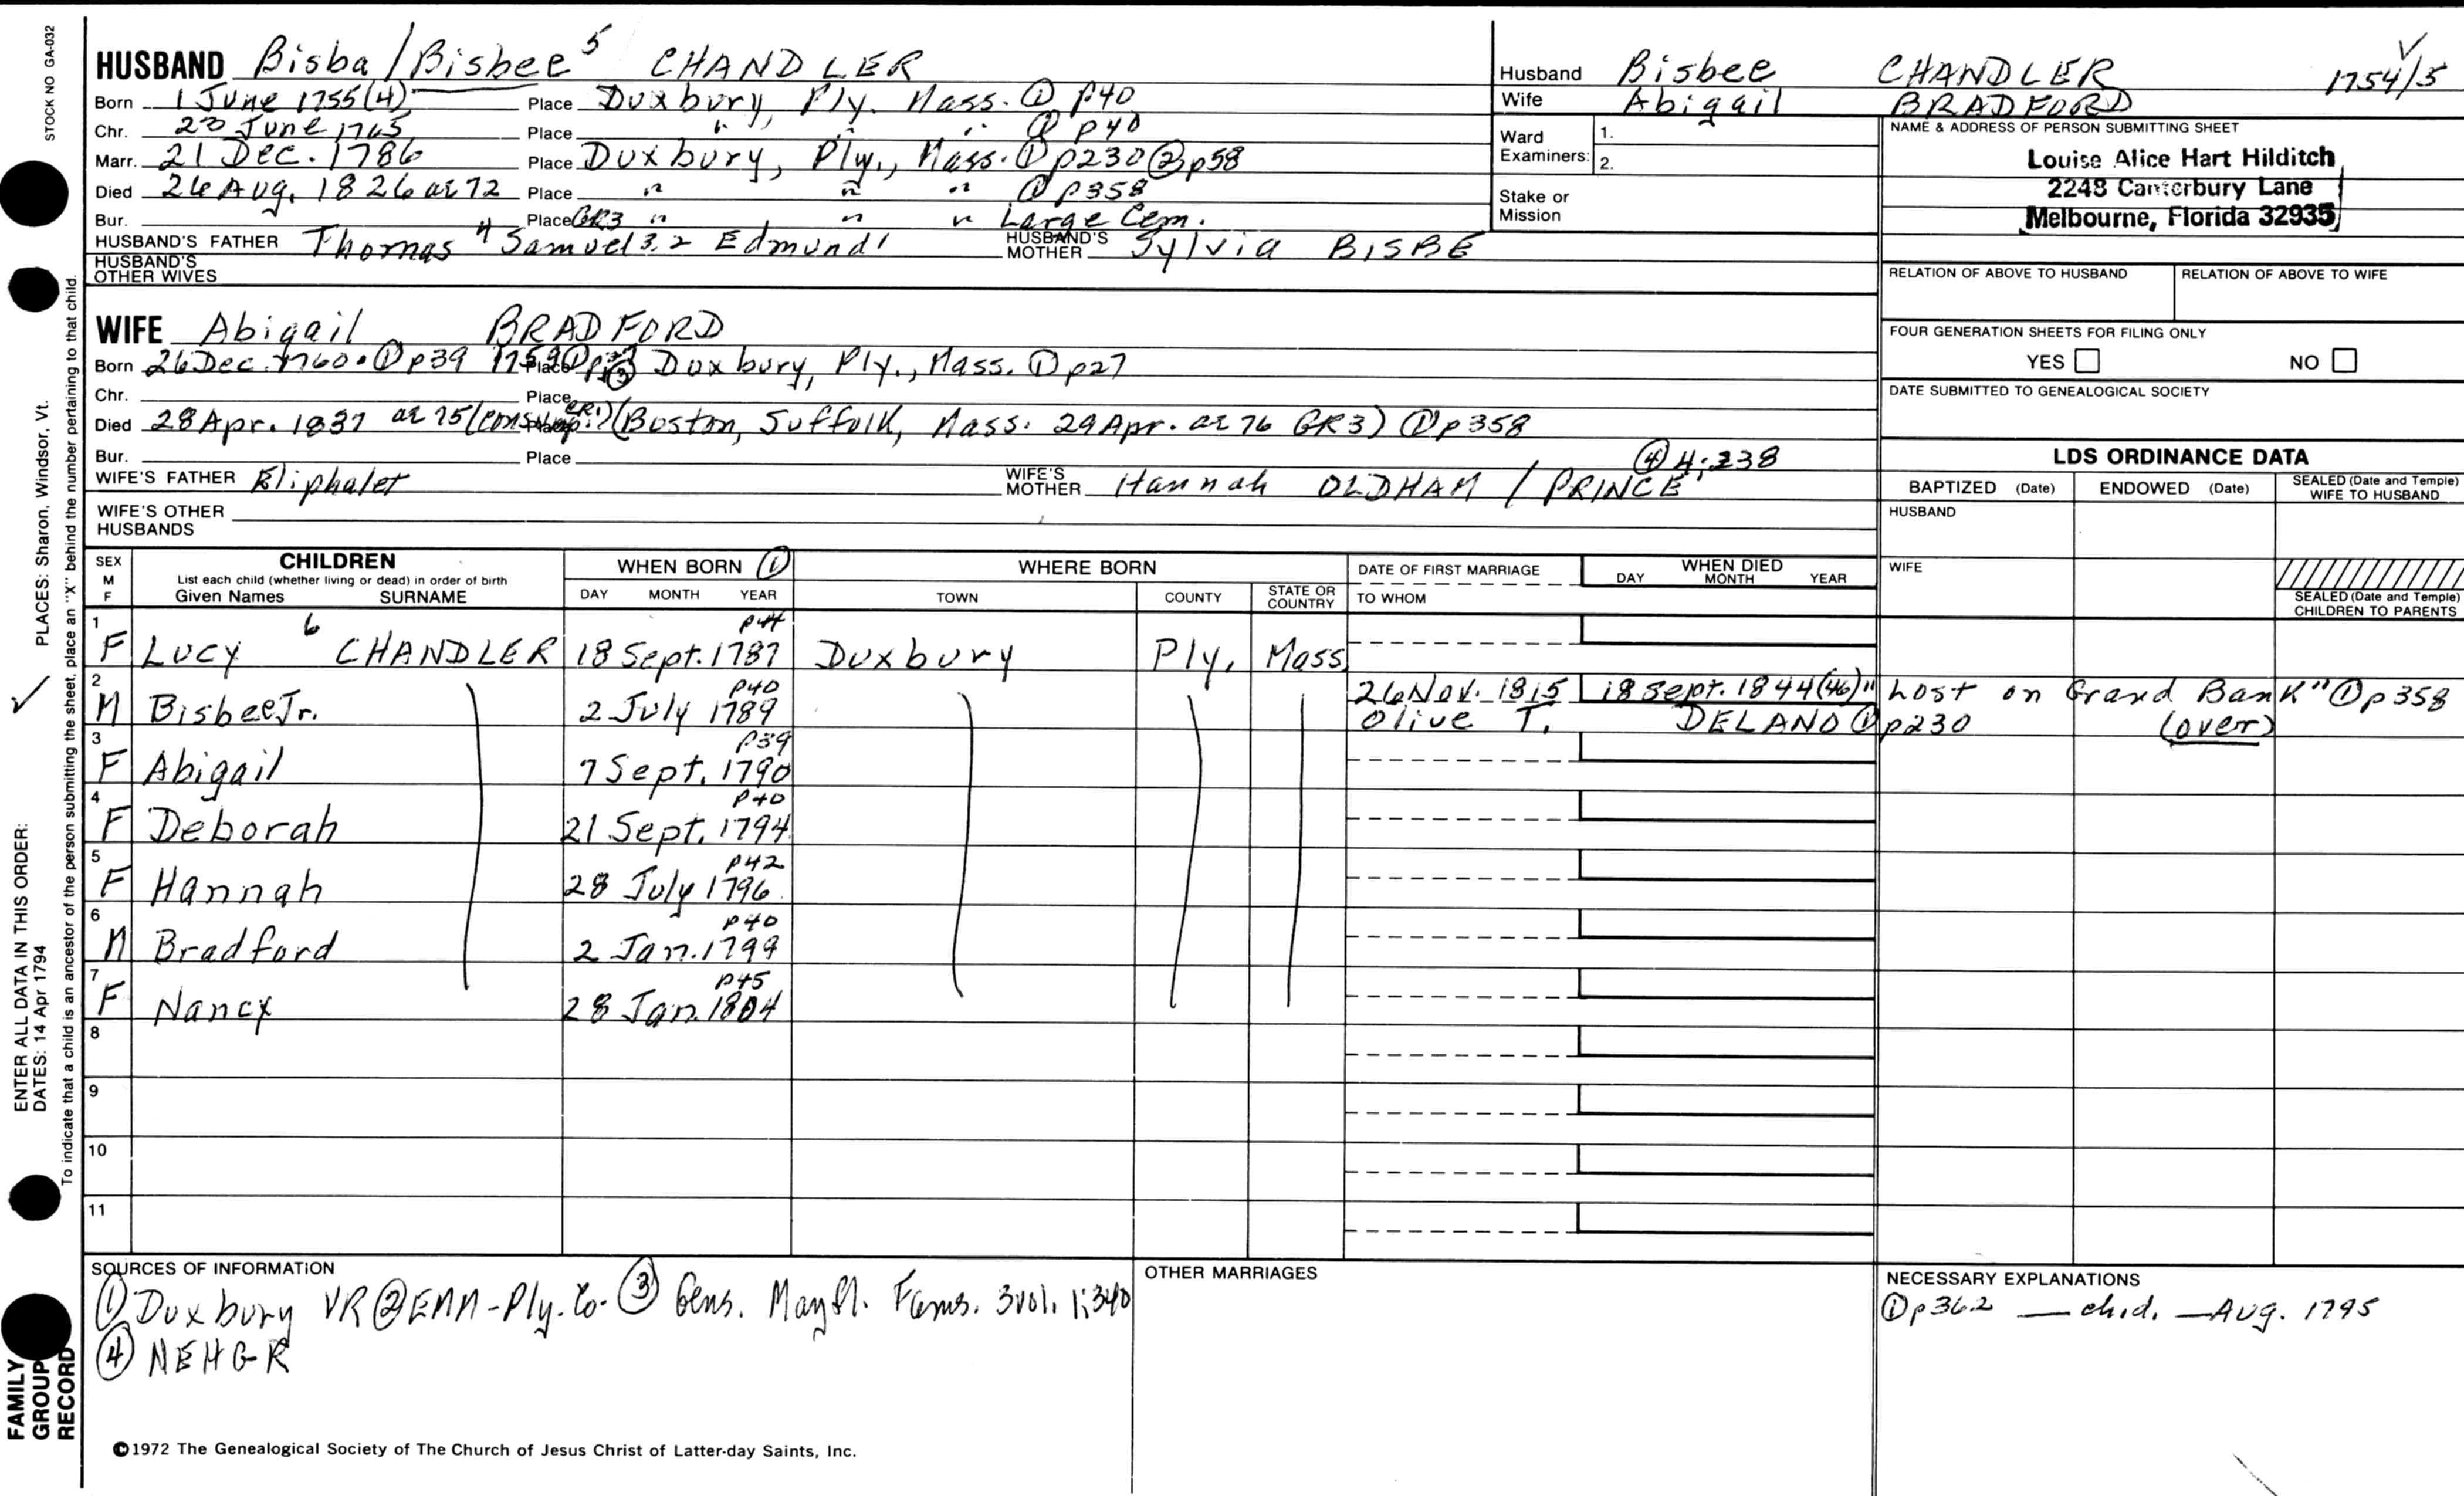 STOCK NO GA-032
HUSBAND Bisba/Bisbee 5 CHANDLER
Born 1 June 1755(4) Place Duxbury, Ply. Mass. ① p40
Chr. 20 June 1765 Place " " " ① p40
Marr. 21 Dec. 1786 Place Duxbury, Ply., Mass. ① p230 ② p58
Died 26 Aug. 1826 ae 72 Place " " " ① p358
Bur. Place GR3 " " " Large Cem.
HUSBAND'S FATHER Thomas 4 Samuel 3, 2 Edmund 1 HUSBAND'S MOTHER Sylvia BISBE
HUSBAND'S OTHER WIVES
Husband Bisbee CHANDLER 1754/5
Wife Abigail BRADFORD
Ward Examiners: 1.
2.
Stake or Mission
NAME & ADDRESS OF PERSON SUBMITTING SHEET
Louise Alice Hart Hilditch
2248 Canterbury Lane
Melbourne, Florida 32935
RELATION OF ABOVE TO HUSBAND RELATION OF ABOVE TO WIFE
FOUR GENERATION SHEETS FOR FILING ONLY
YES NO
DATE SUBMITTED TO GENEALOGICAL SOCIETY
WIFE Abigail BRADFORD
Born 26 Dec. 1760. ① p39 1759 Place ③ Duxbury, Ply., Mass. ① p27
Chr. Place
Died 28 Apr. 1837 ae 75 (consump. CR1) Place (Boston, Suffolk, Mass. 29 Apr. ae 76 GR3) ① p358
Bur. Place
④ 4:238
WIFE'S FATHER Eliphalet WIFE'S MOTHER Hannah OLDHAM / PRINCE
WIFE'S OTHER HUSBANDS
LDS ORDINANCE DATA
BAPTIZED (Date) ENDOWED (Date) SEALED (Date and Temple) WIFE TO HUSBAND
HUSBAND
WIFE
SEALED (Date and Temple) CHILDREN TO PARENTS
SEX M F CHILDREN WHEN BORN ① WHERE BORN DATE OF FIRST MARRIAGE WHEN DIED
List each child (whether living or dead) in order of birth
Given Names SURNAME DAY MONTH YEAR TOWN COUNTY STATE OR COUNTRY TO WHOM DAY MONTH YEAR
1 F Lucy 6 CHANDLER 18 Sept. 1787 p44 Duxbury Ply. Mass
2 M Bisbee Jr. 2 July 1789 p40 26 Nov. 1815 18 Sept. 1844 (46) "Lost on Grand Bank" ① p358
Olive T. DELANO ① p230 (over)
3 F Abigail 7 Sept. 1790 p39
4 F Deborah 21 Sept. 1794 p40
5 F Hannah 28 July 1796 p42
6 M Bradford 2 Jan. 1799 p40
7 F Nancy 28 Jan. 1804 p45
8
9
10
11
SOURCES OF INFORMATION
① Duxbury VR ② EMM-Ply. Co. ③ Gens. Mayfl. Fams. 3vol. 1:340
④ NEHGR
OTHER MARRIAGES
NECESSARY EXPLANATIONS
① p362 — ch.d. — Aug. 1795
©1972 The Genealogical Society of The Church of Jesus Christ of Latter-day Saints, Inc.
FAMILY GROUP RECORD
ENTER ALL DATA IN THIS ORDER:
DATES: 14 Apr 1794
PLACES: Sharon, Windsor, Vt.
To indicate that a child is an ancestor of the person submitting the sheet, place an "X" behind the number pertaining to that child.